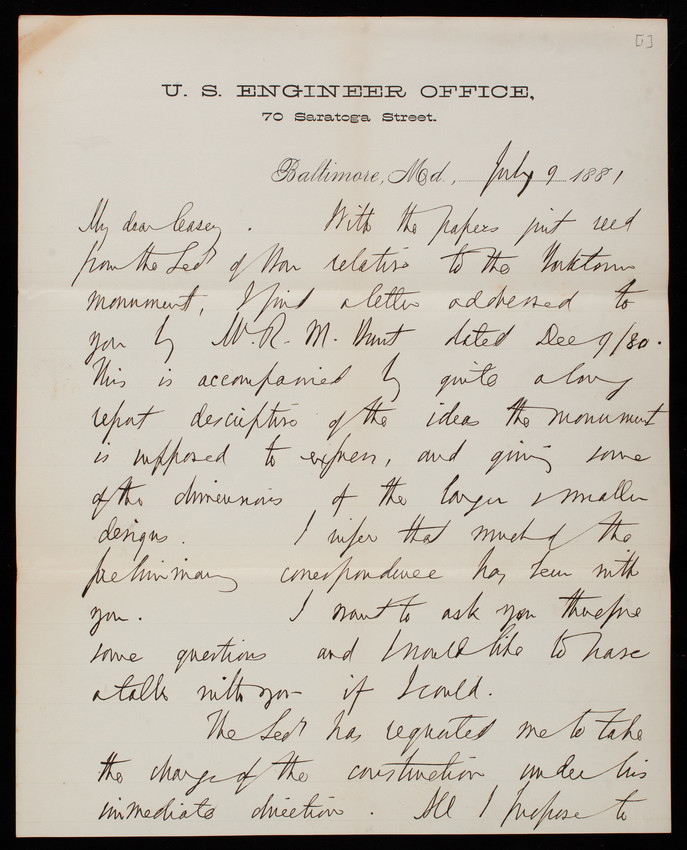 [1]
U. S. ENGINEER OFFICE,
70 Saratoga Street.
Baltimore, Md., July 9 1881
My dear Casey. With the papers just recd
from the Secy of War relative to the Yorktown
monument, I find a letter addressed to
you by Mr. R. M. Hunt dated Dec 9/80.
This is accompanied by quite a long
report descriptive of the ideas the monument
is supposed to express, and giving some
of the dimensions of the larger & smaller
designs. I infer that much of the
preliminary correspondence has been with
you. I want to ask you therefore
some questions and would like to have
a talk with you if I could.
The Secy has requested me to take
the charge of the construction under his
immediate direction. All I propose to